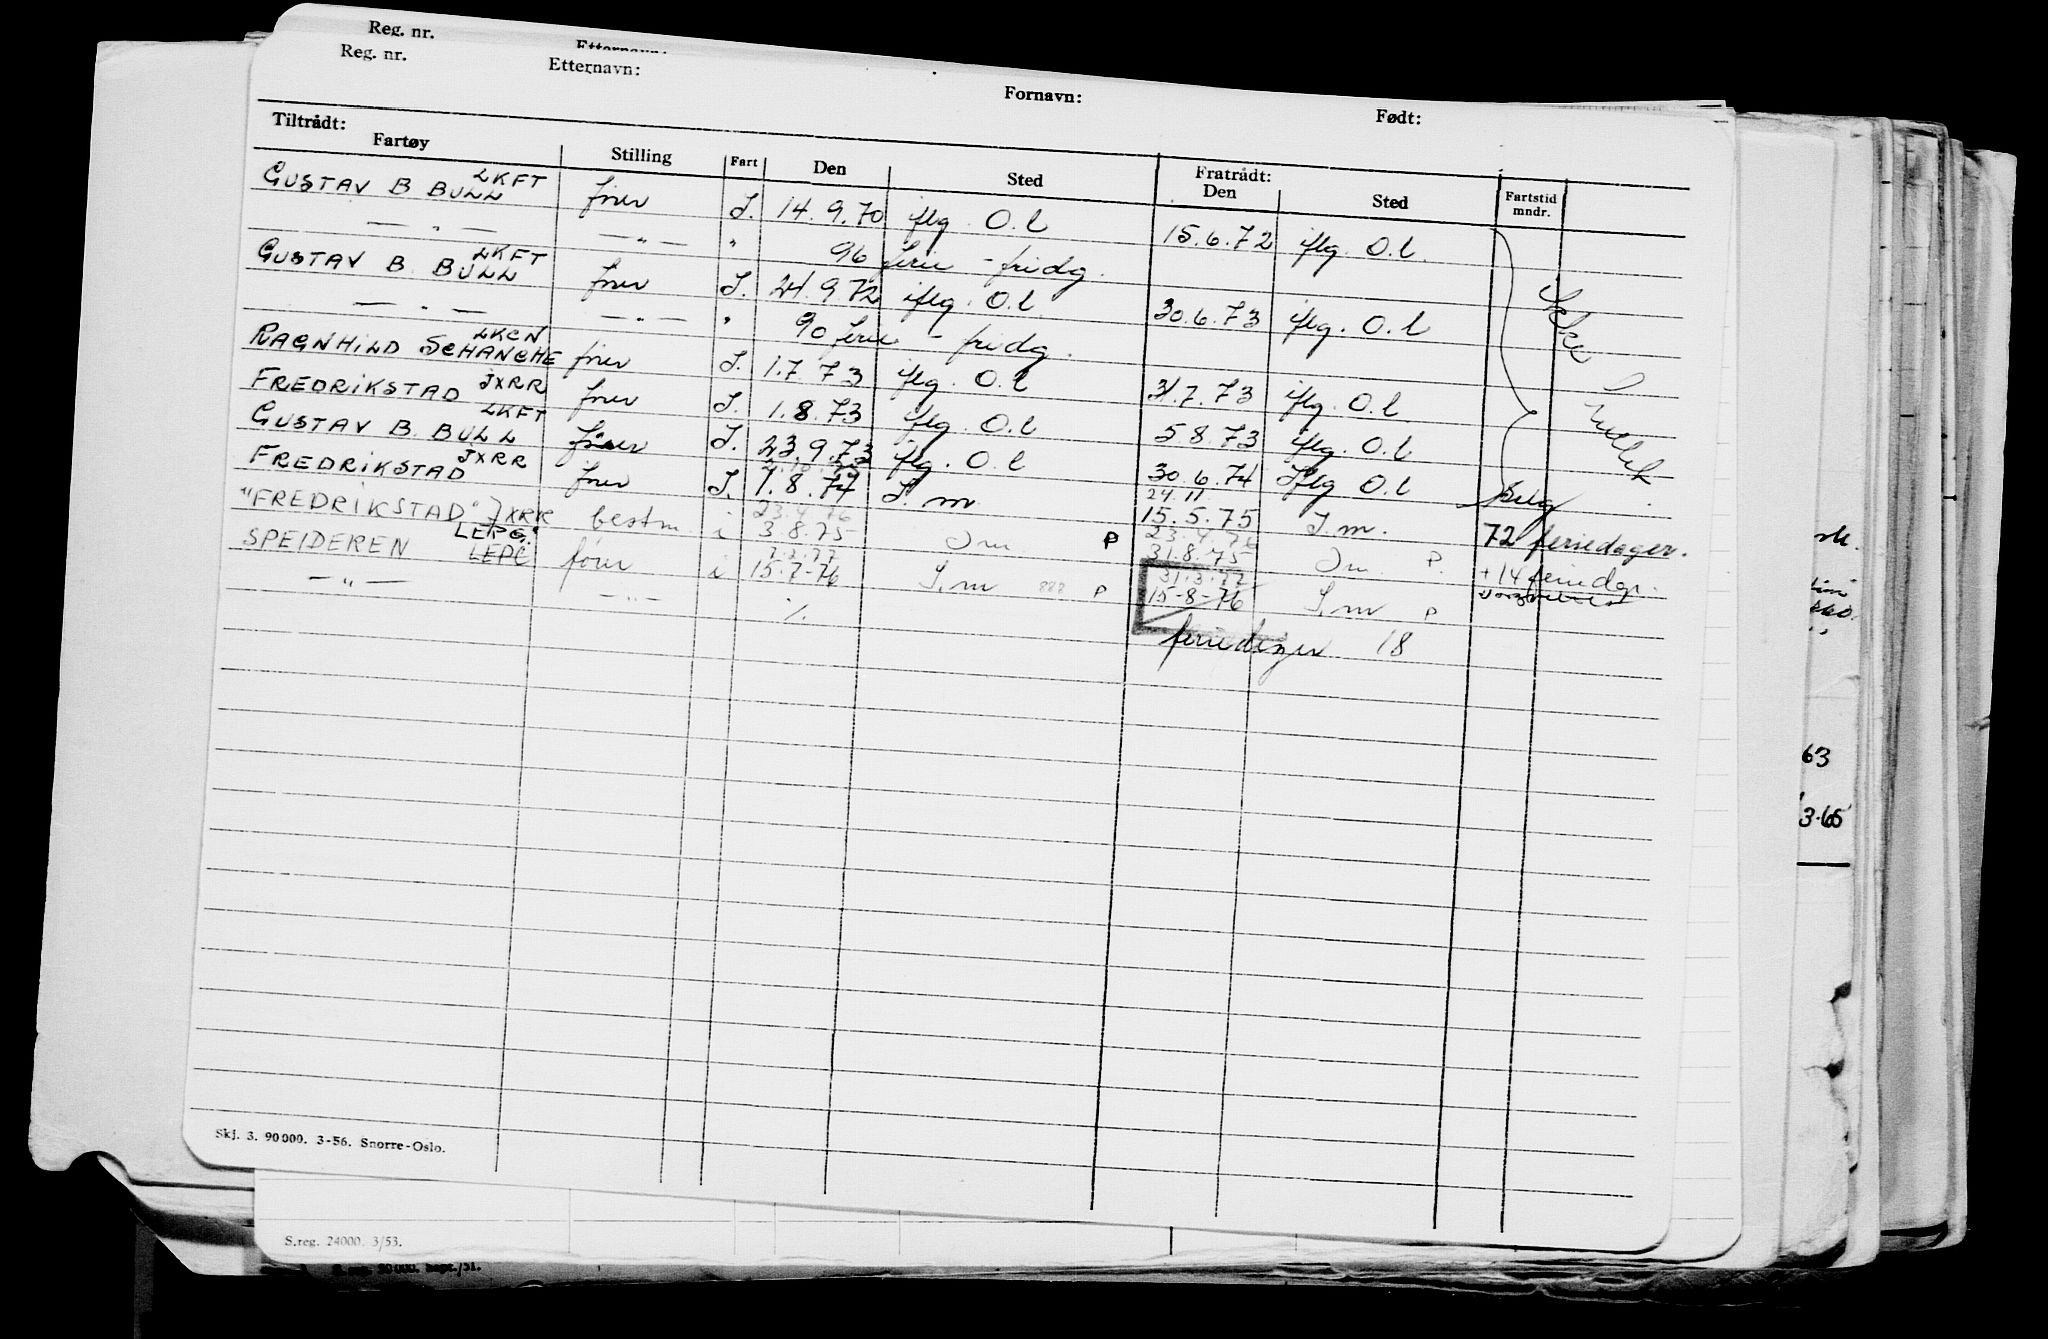 Reg. nr.
Reg. nr. Etternavn: Fornavn: Født:
Tiltrådt: Fratrådt:
Fartøy Stilling Fart Den Sted Den Sted Fartstid mndr.
GUSTAV B BULL LKFT fører I. 14.9.70 iflg. O.l 15.6.72 iflg. O.l.
— " — — " — " 96 ferie - fridg.
GUSTAV B. BULL LKFT fører I. 21.9.72 iflg. O.l. 30.6.73 iflg. O.l
— " — — " — " 90 ferie - fridg.
RAGNHILD SCHANCHE LKCN fører I. 1.7.73 iflg. O.l 31.7.73 iflg. O.l
FREDRIKSTAD JXRR fører I. 1.8.73 iflg. O.l 5.8.73 iflg. O.l
GUSTAV B. BULL LKFT fører I. 23.9.73 iflg. O.l 30.6.74 Iflg O.l
FREDRIKSTAD JXRR fører I. 1.8.74 I.m 24.11 15.5.75 I.m. 72 feriedager.
"FREDRIKSTAD" JXRR bestm. i 23.4.76 3.8.75 Im P 31.8.75 Im P. + 14 feriedgr.
SPEIDEREN LEPG LEPC fører i 15-7-76 I.m 888 P 31.3.77 15-8-76 I.m P
— " — — " — % feriedager 18
63
3-65
Skj. 3. 90000. 3-56. Snorre-Oslo.
S.reg. 24000. 3/53.